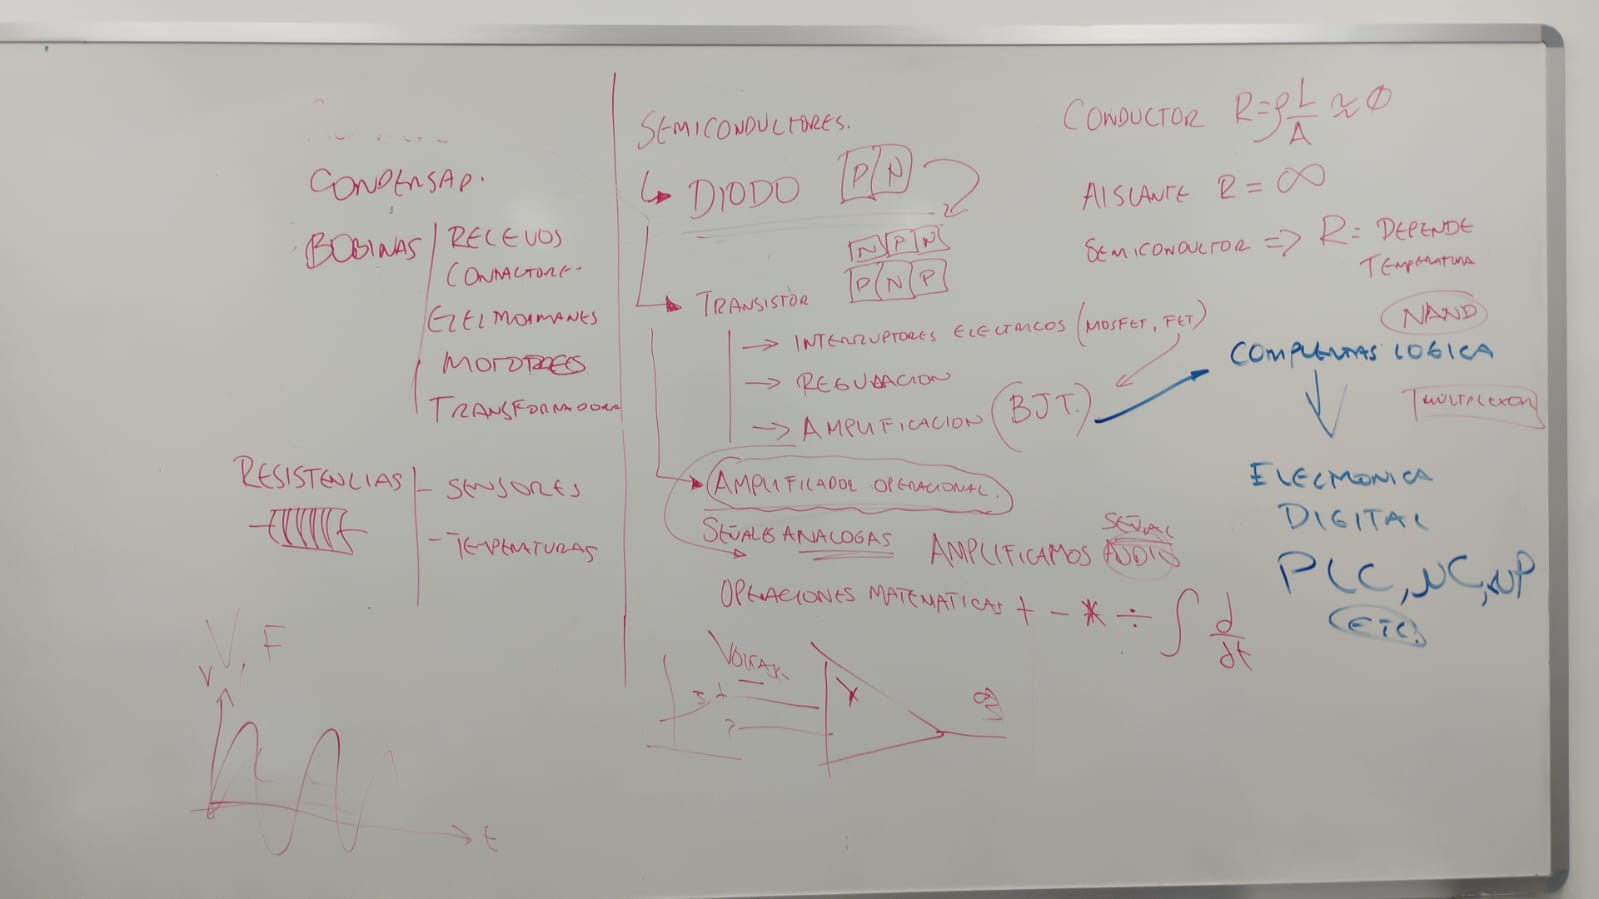 CONDENSAD.
BOBINAS
RELEVOS
CONTACTORE-
ELECTROIMANES
MOTORES
TRANSFORMADORA
RESISTENCIAS
- SENSORES
- TEMPERATURAS
V, F
V
t
SEMICONDUCTORES.
DIODO P N
N P N
P N P
TRANSISTOR
→ INTERRUPTORES ELECTRICOS (MOSFET, FET)
→ REGULACION
→ AMPLIFICACION (BJT.)
AMPLIFICADOR OPERACIONAL.
SEÑALES ANALOGAS
AMPLIFICAMOS AUDIO
SEÑAL
OPERACIONES MATEMATICAS + - * ÷ ∫ d/dt
VOLTAJE
CONDUCTOR R=ρ L/A ≈ Ø
AISLANTE R = ∞
SEMICONDUCTOR => R= DEPENDE
TEMPERATURA
NAND
COMPUERTAS LOGICA
MULTIPLEXOR
ELECTRONICA
DIGITAL
PLC, μC, μP
ETC.